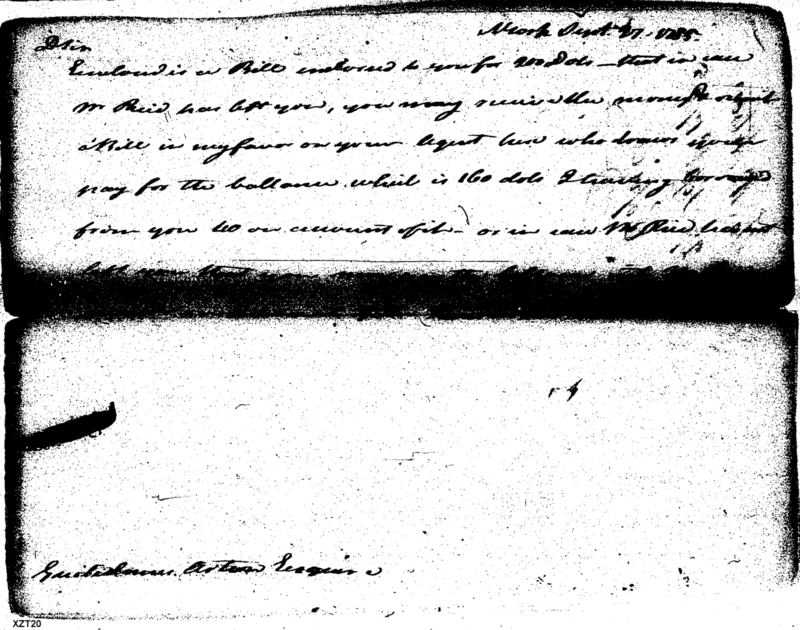 N York Sept 27. 1785.
D Sir
Enclosed is a Bill endorsed to you for 200 dols - that in case
Mr Reid has left you, you may receive the money & remit
a Bill in my favor on your Agent here who draws your
pay for the ballance which is 160 dols I having borrowed
from you 40 on account of it - or in case Mr Reid has not
left you that you
Esquire
XZT20